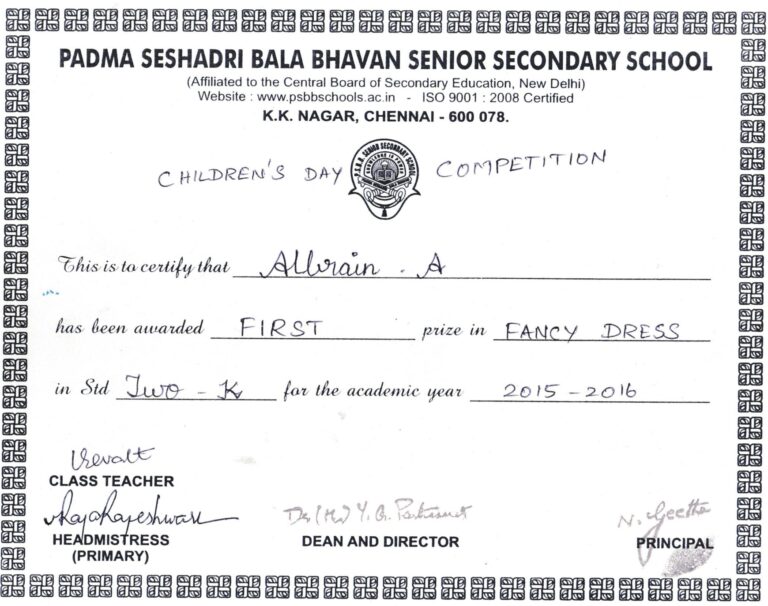 PADMA SESHADRI BALA BHAVAN SENIOR SECONDARY SCHOOL
(Affiliated to the Central Board of Secondary Education, New Delhi)
Website : www.psbbschools.ac.in - ISO 9001 : 2008 Certified
K.K. NAGAR, CHENNAI - 600 078.
P.S.B.B. SENIOR SECONDARY SCHOOL
KNOWLEDGE IS POWER
CHILDREN'S DAY COMPETITION
This is to certify that Allwrain . A
has been awarded FIRST prize in FANCY DRESS
in Std Two - K for the academic year 2015 - 2016
CLASS TEACHER
HEADMISTRESS
(PRIMARY)
DEAN AND DIRECTOR
N. Geetha
PRINCIPAL